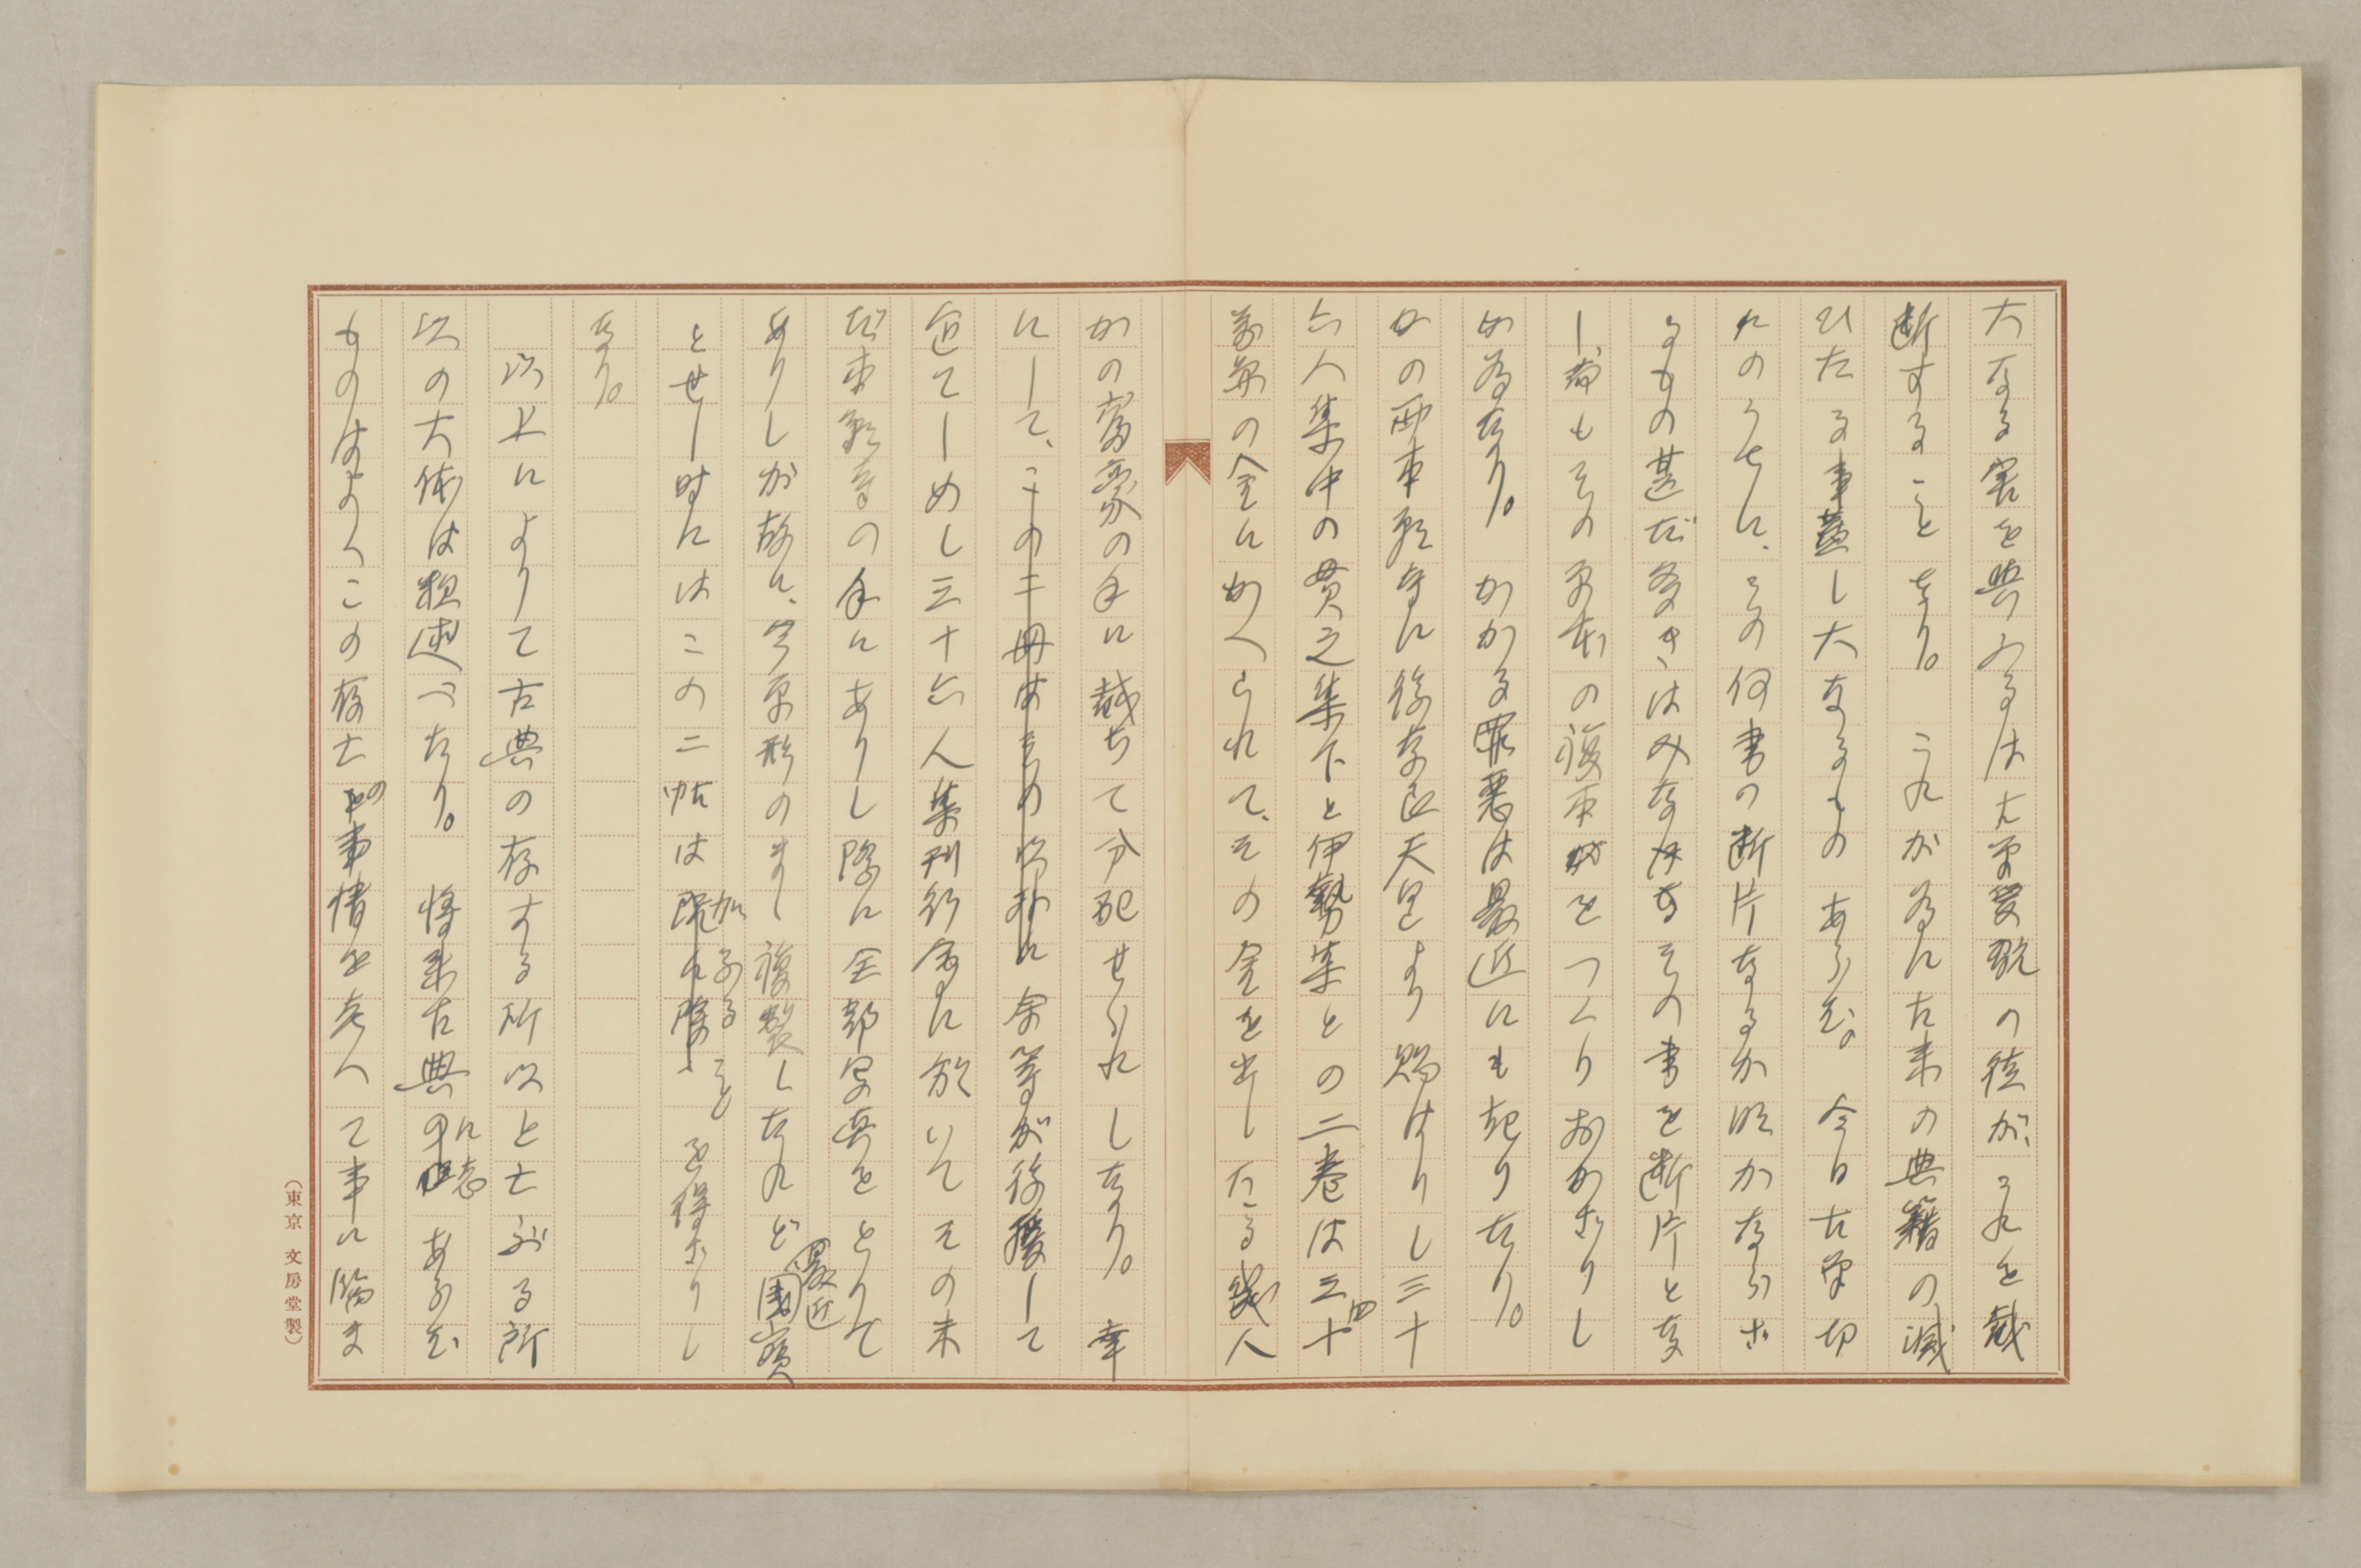 大なる害を与ふるは古筆愛翫の徒が、これを截
断することなり。これが為に古来の典籍の滅
びたる事蓋し大なるものあらむ。今日古筆切
れのうちに、その何書の断片なるか明かならざ
るもの甚だ多きはみなその書を断片となし
、而もその原本の複本をつくりおかざりし
が為なり。かかる罪悪は最近にも起りたり。
かの西本願寺に後奈良天皇より賜はりし三十
六人集中の貫之集下と伊勢集との二巻は三四十
万円の金にかへられて、その金を出したる幾人
かの富豪の手に截ちて分配せられしなり。幸
にして、この二冊はその以前に余等が後援して
企てしめし三十六人集刊行会に於いてその未
だ本願寺の手にありし際に全部写真をとりて
ありしが故に、今原形のまゝ複製したれど最近国宝
とせし時にはこの二帖は加ふることを得ざりし
なり。
以上によりて古典の存する所以と亡ぶる所
以の大体は粗述べたり。将来古典に志あらむ
ものはよくこの存亡の事情を考へて事に臨ま
（東京 文房堂製）